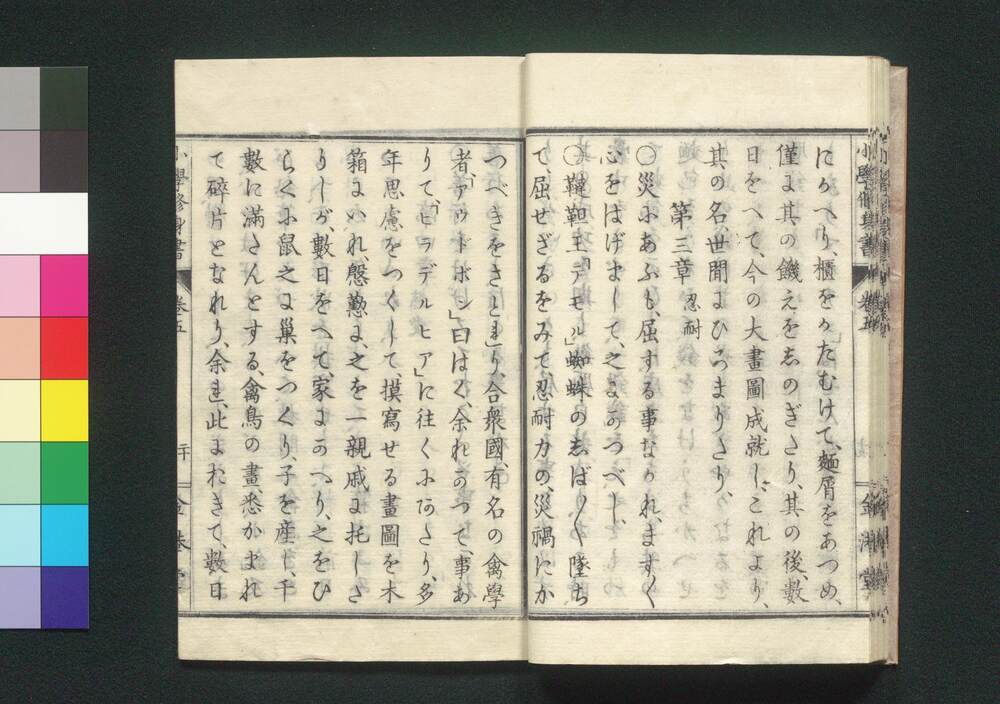 にかへり、櫃をかたむけて、麵屑をあつめ、
僅に其の饑えをしのぎたり、其の後、數
日をへて、今の大畫圖成就し、これより、
其の名、世間にひろまりたり、
第三章 忍耐
〇災にあふも、屈する事なかれ、ます〱
心をはげまして、之にかつべし、
〇韃靼王「テモル」蜘蛛のしば〱墜ち
て、屈せざるをみて、忍耐力の、災禍にか
つべきをさとれり、合衆國、有名の禽學
者、「アウドボン」曰はく、余れかつて、事あ
りて、「ヒラデルヒア」に往くにあたり、多
年思慮をつくして、摸寫せる畫圖を木
箱にいれ、慇懃に、之を一親戚に托した
りしが、數日をへて家にかへり、之をひ
らくに鼠之に巢をつくり、子を產し、千
數に滿さんとする、禽鳥の畫悉かまれ
て碎片となれり、余れ、此におきて、數日
小學修身書
卷五
二十
金港堂